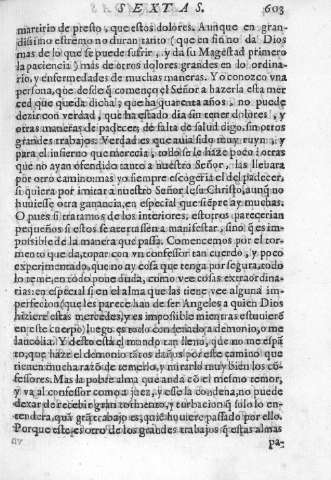 SEXTAS. 603
martirio de presto, que estos dolores. Aunque en gran-
dissimo estremo no duran tanto (que en fin no dá Dios
mas de lo que se puede sufrir, y da su Magestad primero
la paciencia) mas de otros dolores grandes en lo ordina-
rio, y enfermedades de muchas maneras. Yo conozco vna
persona, que desde q̃ començò el Señor a hazerla esta mer
ced que queda dicha, que ha quarenta años, no puede
dezir con verdad, que ha estado dia sin tener dolores, y
otras maneras de padecer, de falta de salud digo, sin otros
grandes trabajos. Verdad es que auia sido muy ruyn, y
para el infierno que merecia, todo se le haze poco: otras
que no ayan ofendido tanto a nuestro Señor, las lleuara
por otro camino: mas yo siempre escogeria el del padecer,
si quiera por imitar a nuestro Señor Iesu Christo, aunq̃ no
huuiesse otra ganancia, en especial que siẽpre ay muchas.
O pues si tratamos de los interiores, estotros parecerian
pequeños si estos se acertassen a manifestar, sino q̃ es im-
possible de la manera que passa. Comencemos por el tor-
mento que da, topar con vn confessor tan cuerdo, y poco
experimentado, que no ay cosa que tenga por segura, todo
lo teme, en todo pone duda, como vee cosas extraordina-
rias: en especial si en el alma que las tiene vee alguna im-
perfecion (que les parece han de ser Angeles a quien Dios
hiziere estas mercedes, y es impossible mientras estuuierẽ
en este cuerpo) luego es todo condenado a demonio, o me
lancolia. Y desto està el mundo tan lleno, que no me espã
to, que haze el demonio tãtos daños por este camino que
tienen mucha razõ de temerlo, y mirarlo muy bien los cõ-
fessores. Mas la pobre alma que anda cõ el mesmo temor,
y va al confessor como a juez, y esse la condena, no puede
dexar de recebir gran tormento, y turbacion, q̃ solo lo en-
tenderà, quã grã trabajo es, quiẽ huuiere passado por ello.
Porque este es otro de los grandes trabajos q̃ estas almas
pa-